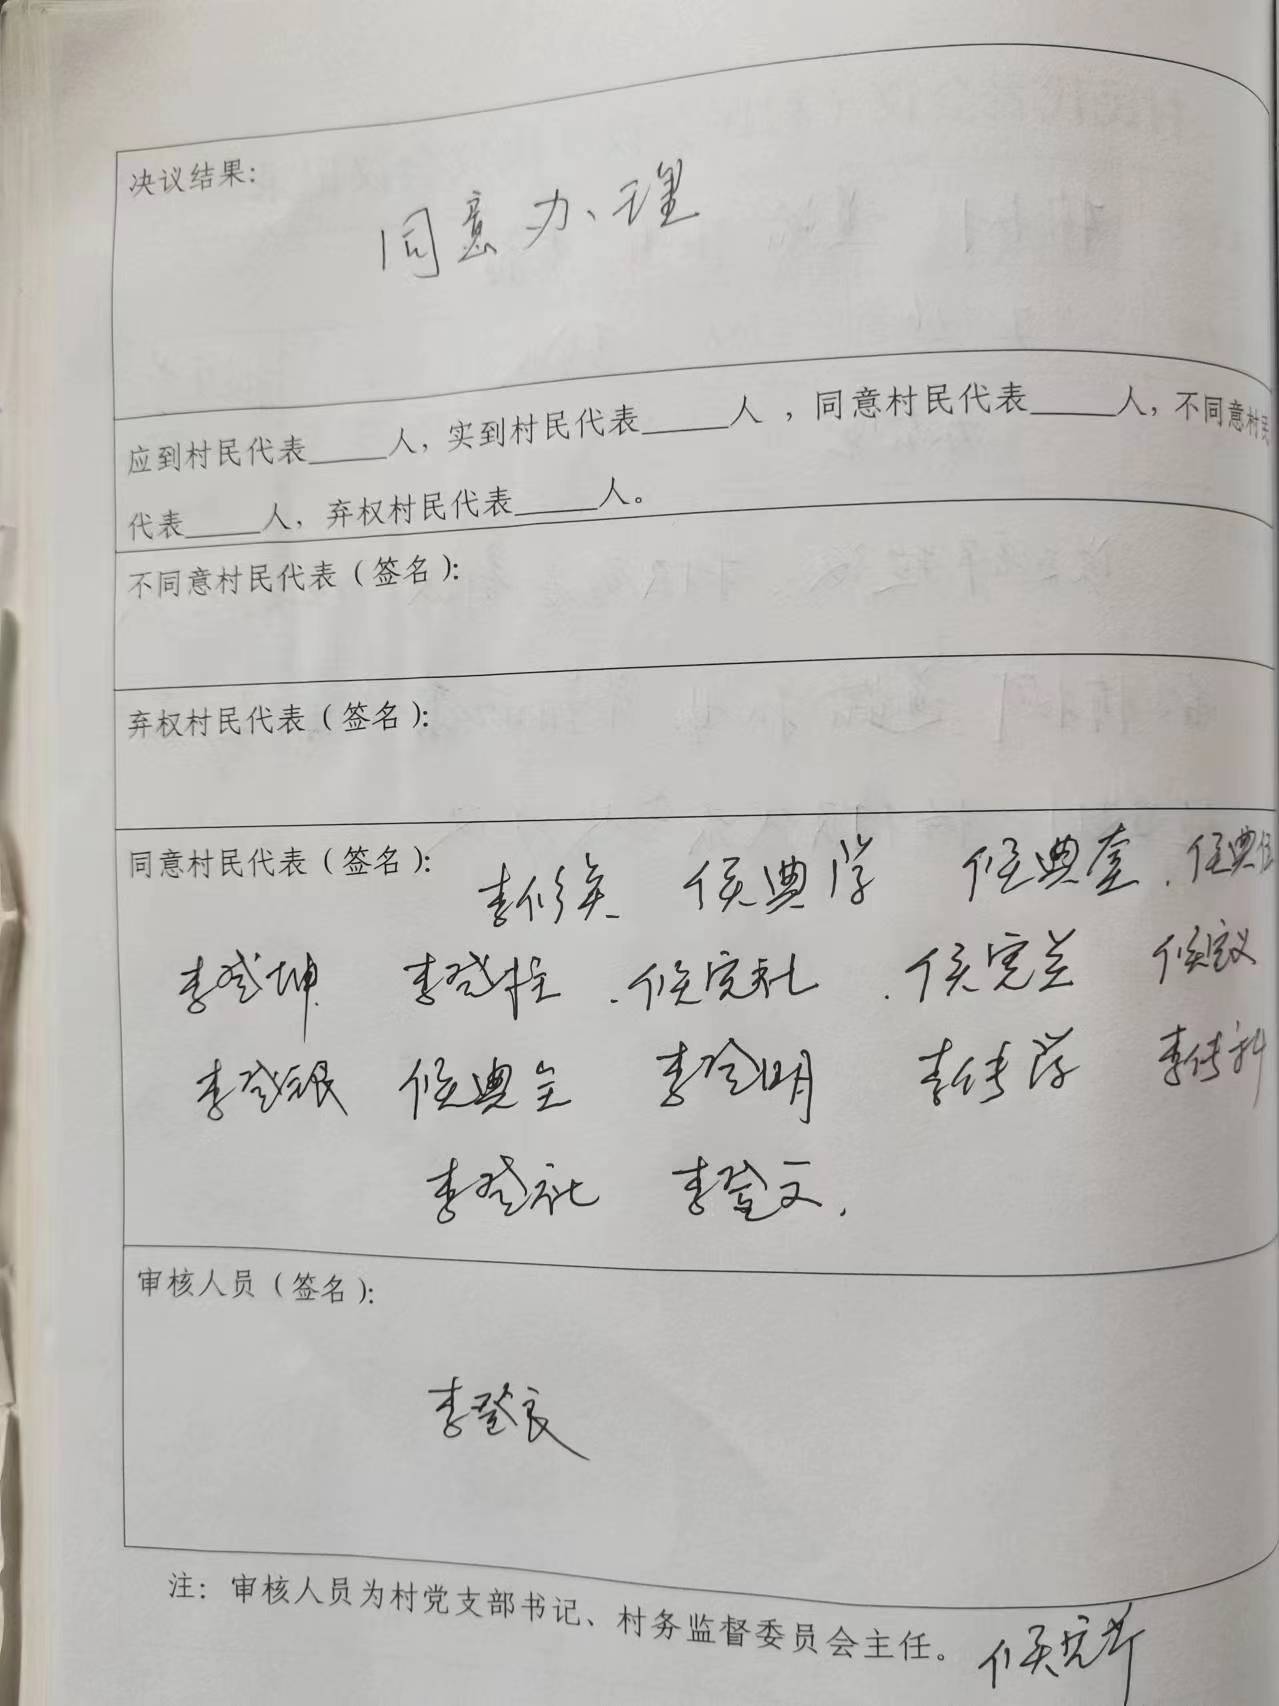 决议结果：
同意办理
应到村民代表_____人，实到村民代表_____人，同意村民代表_____人，不同意村民
代表_____人，弃权村民代表_____人。
不同意村民代表（签名）：
弃权村民代表（签名）：
同意村民代表（签名）： 李修美 侯典学 侯典奎 侯典
李登坤 李登柱 侯宪社 侯宪兰 侯宪议
李登银 侯典全 李登明 李传学 李传科
李登社 李登文
审核人员（签名）：
李登良
注：审核人员为村党支部书记、村务监督委员会主任。 侯宪